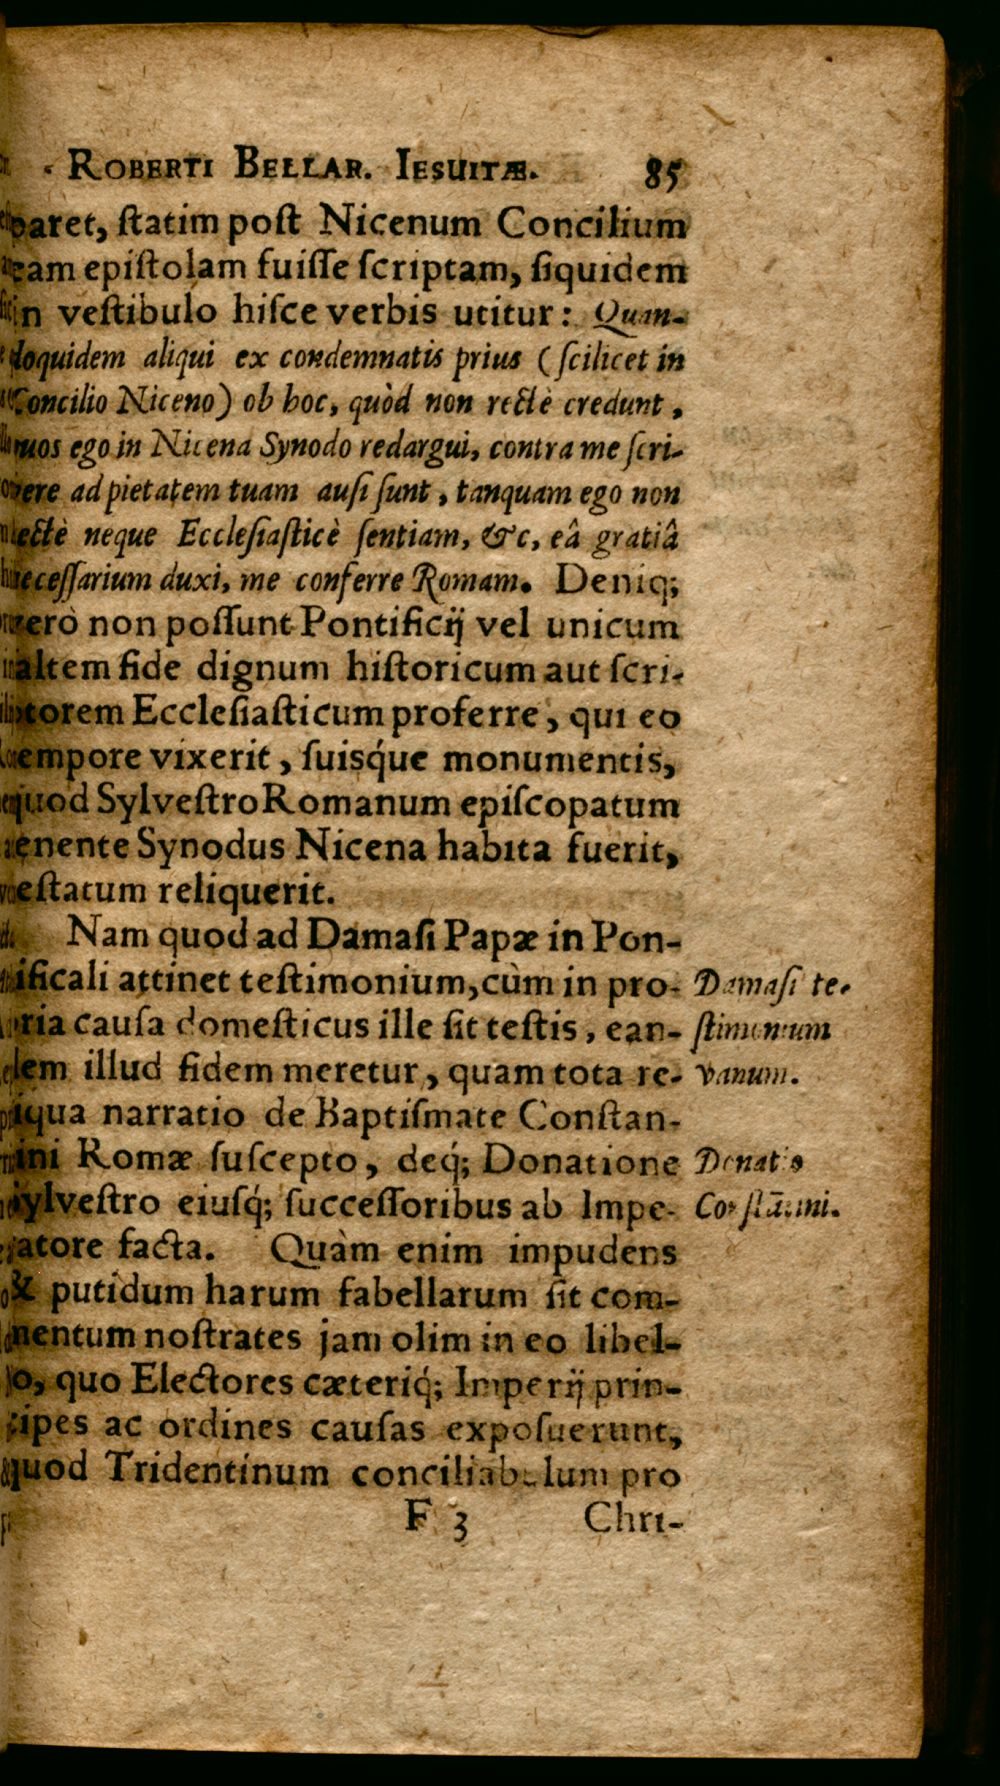 ROBERTI BELLAR. IESUITÆ. 85
paret, ſtatim poſt Nicenum Concilium
eam epiſtolam fuiſſe ſcriptam, ſiquidem
in veſtibulo hiſce verbis utitur: Quan-
doquidem aliqui ex condemnatis prius (ſcilicet in
Concilio Niceno) ob hoc, quòd non rectè credunt,
quos ego in Nicena Synodo redargui, contra me ſcri-
bere ad pietatem tuam auſi ſunt, tanquam ego non
rectè neque Eccleſiaſticè ſentiam, &c, eâ gratiâ
neceſſarium duxi, me conferre Romam. Deniq;
verò non poſſunt Pontificij vel unicum
ſaltem fide dignum hiſtoricum aut ſcri-
ptorem Eccleſiaſticum proferre, qui eo
tempore vixerit, ſuisq́ue monumentis,
quod Sylveſtro Romanum epiſcopatum
tenente Synodus Nicena habita fuerit,
teſtatum reliquerit.
Nam quod ad Damaſi Papæ in Pon-
tificali attinet teſtimonium, cùm in pro-
pria cauſa domeſticus ille ſit teſtis, ean-
dem illud fidem meretur, quam tota re-
liqua narratio de Baptiſmate Conſtan-
tini Romæ ſuſcepto, deq́; Donatione
Sylveſtro eiuſq́; ſucceſſoribus ab Impe-
ratore facta. Quàm enim impudens
& putidum harum fabellarum ſit com-
mentum noſtrates jam olim in eo libel-
lo, quo Electores cæteriq́; Imperij prin-
cipes ac ordines cauſas expoſuerunt,
quod Tridentinum conciliabulum pro
F 3 Chri-
Damaſi te-
ſtimonium
vanum.
Donatio
Conſtātini.